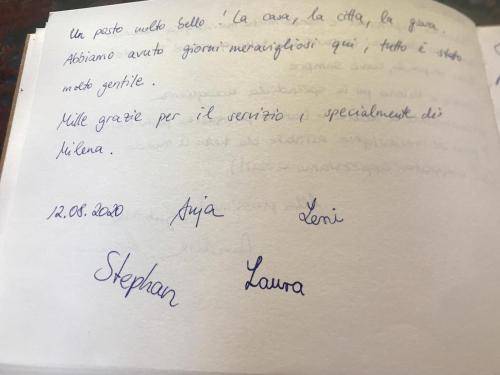 Un posto molto bello! La casa, la città, la gioia.
Abbiamo avuto giorni meravigliosi qui, tutto è stato
molto gentile.
Mille grazie per il servizio, specialmente di
Milena.
12.08.2020 Anja Leni
Stephan Laura